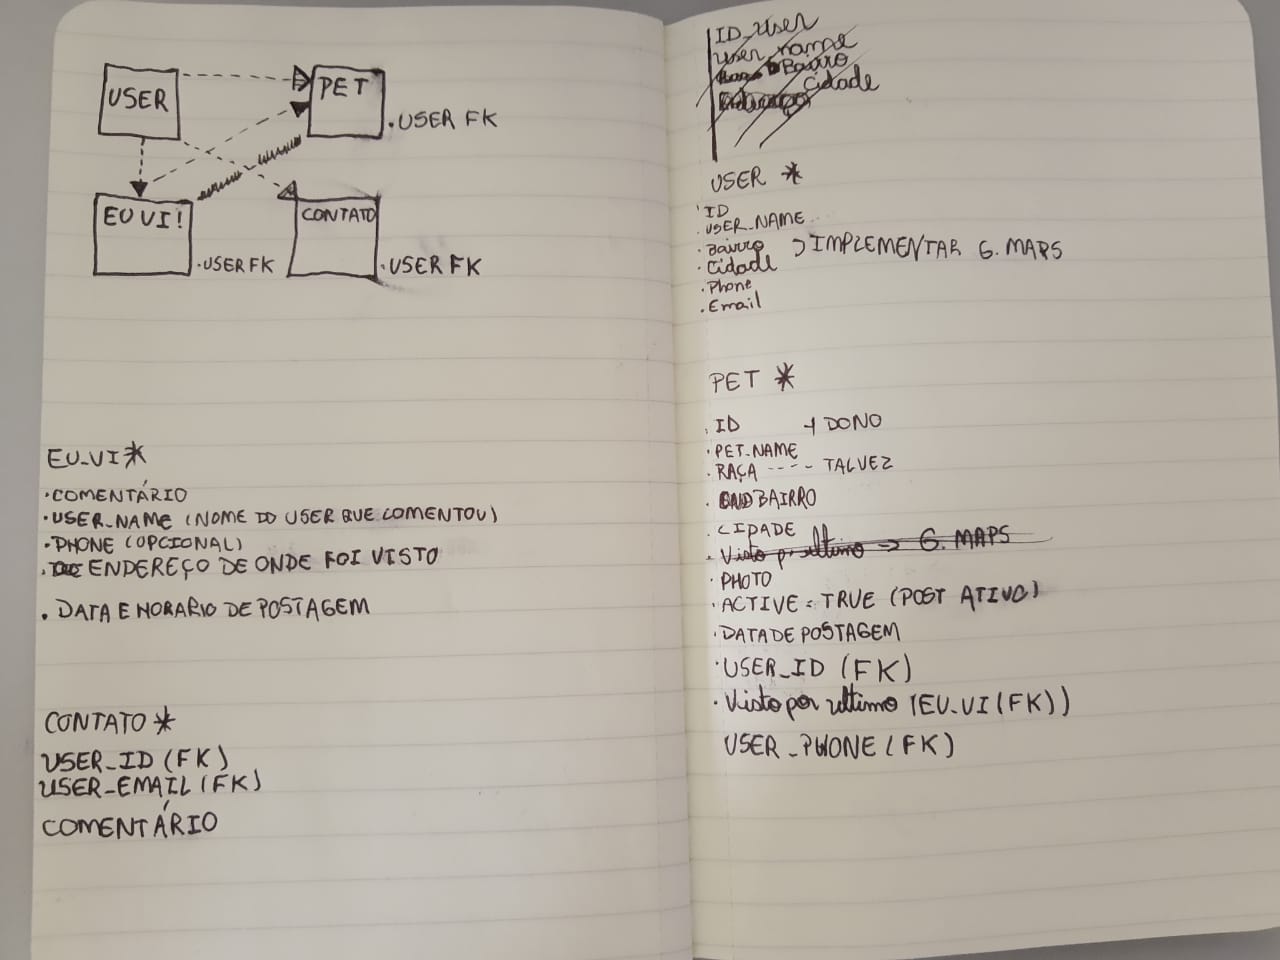 USER
PET
.USER FK
EU VI!
.USER FK
CONTATO
.USER FK
EU_VI*
·COMENTÁRIO
·USER_NAME (NOME DO USER QUE COMENTOU)
·PHONE (OPCIONAL)
. ENDEREÇO DE ONDE FOI VISTO
. DATA E HORARIO DE POSTAGEM
CONTATO *
USER_ID (FK)
USER_EMAIL (FK)
COMENTÁRIO
ID_User
user_name
Bairro
Cidade
USER *
ID
. USER_NAME
. Bairro
. Cidade
IMPLEMENTAR G. MAPS
. Phone
. Email
PET *
. ID
DONO
· PET_NAME
. RAÇA ---- TALVEZ
. BAIRRO
. CIDADE
. Visto p/ ultimo => G. MAPS
· PHOTO
· ACTIVE = TRUE (POST ATIVO)
· DATA DE POSTAGEM
· USER_ID (FK)
· Visto por ultimo (EU_VI (FK))
USER_PHONE (FK)